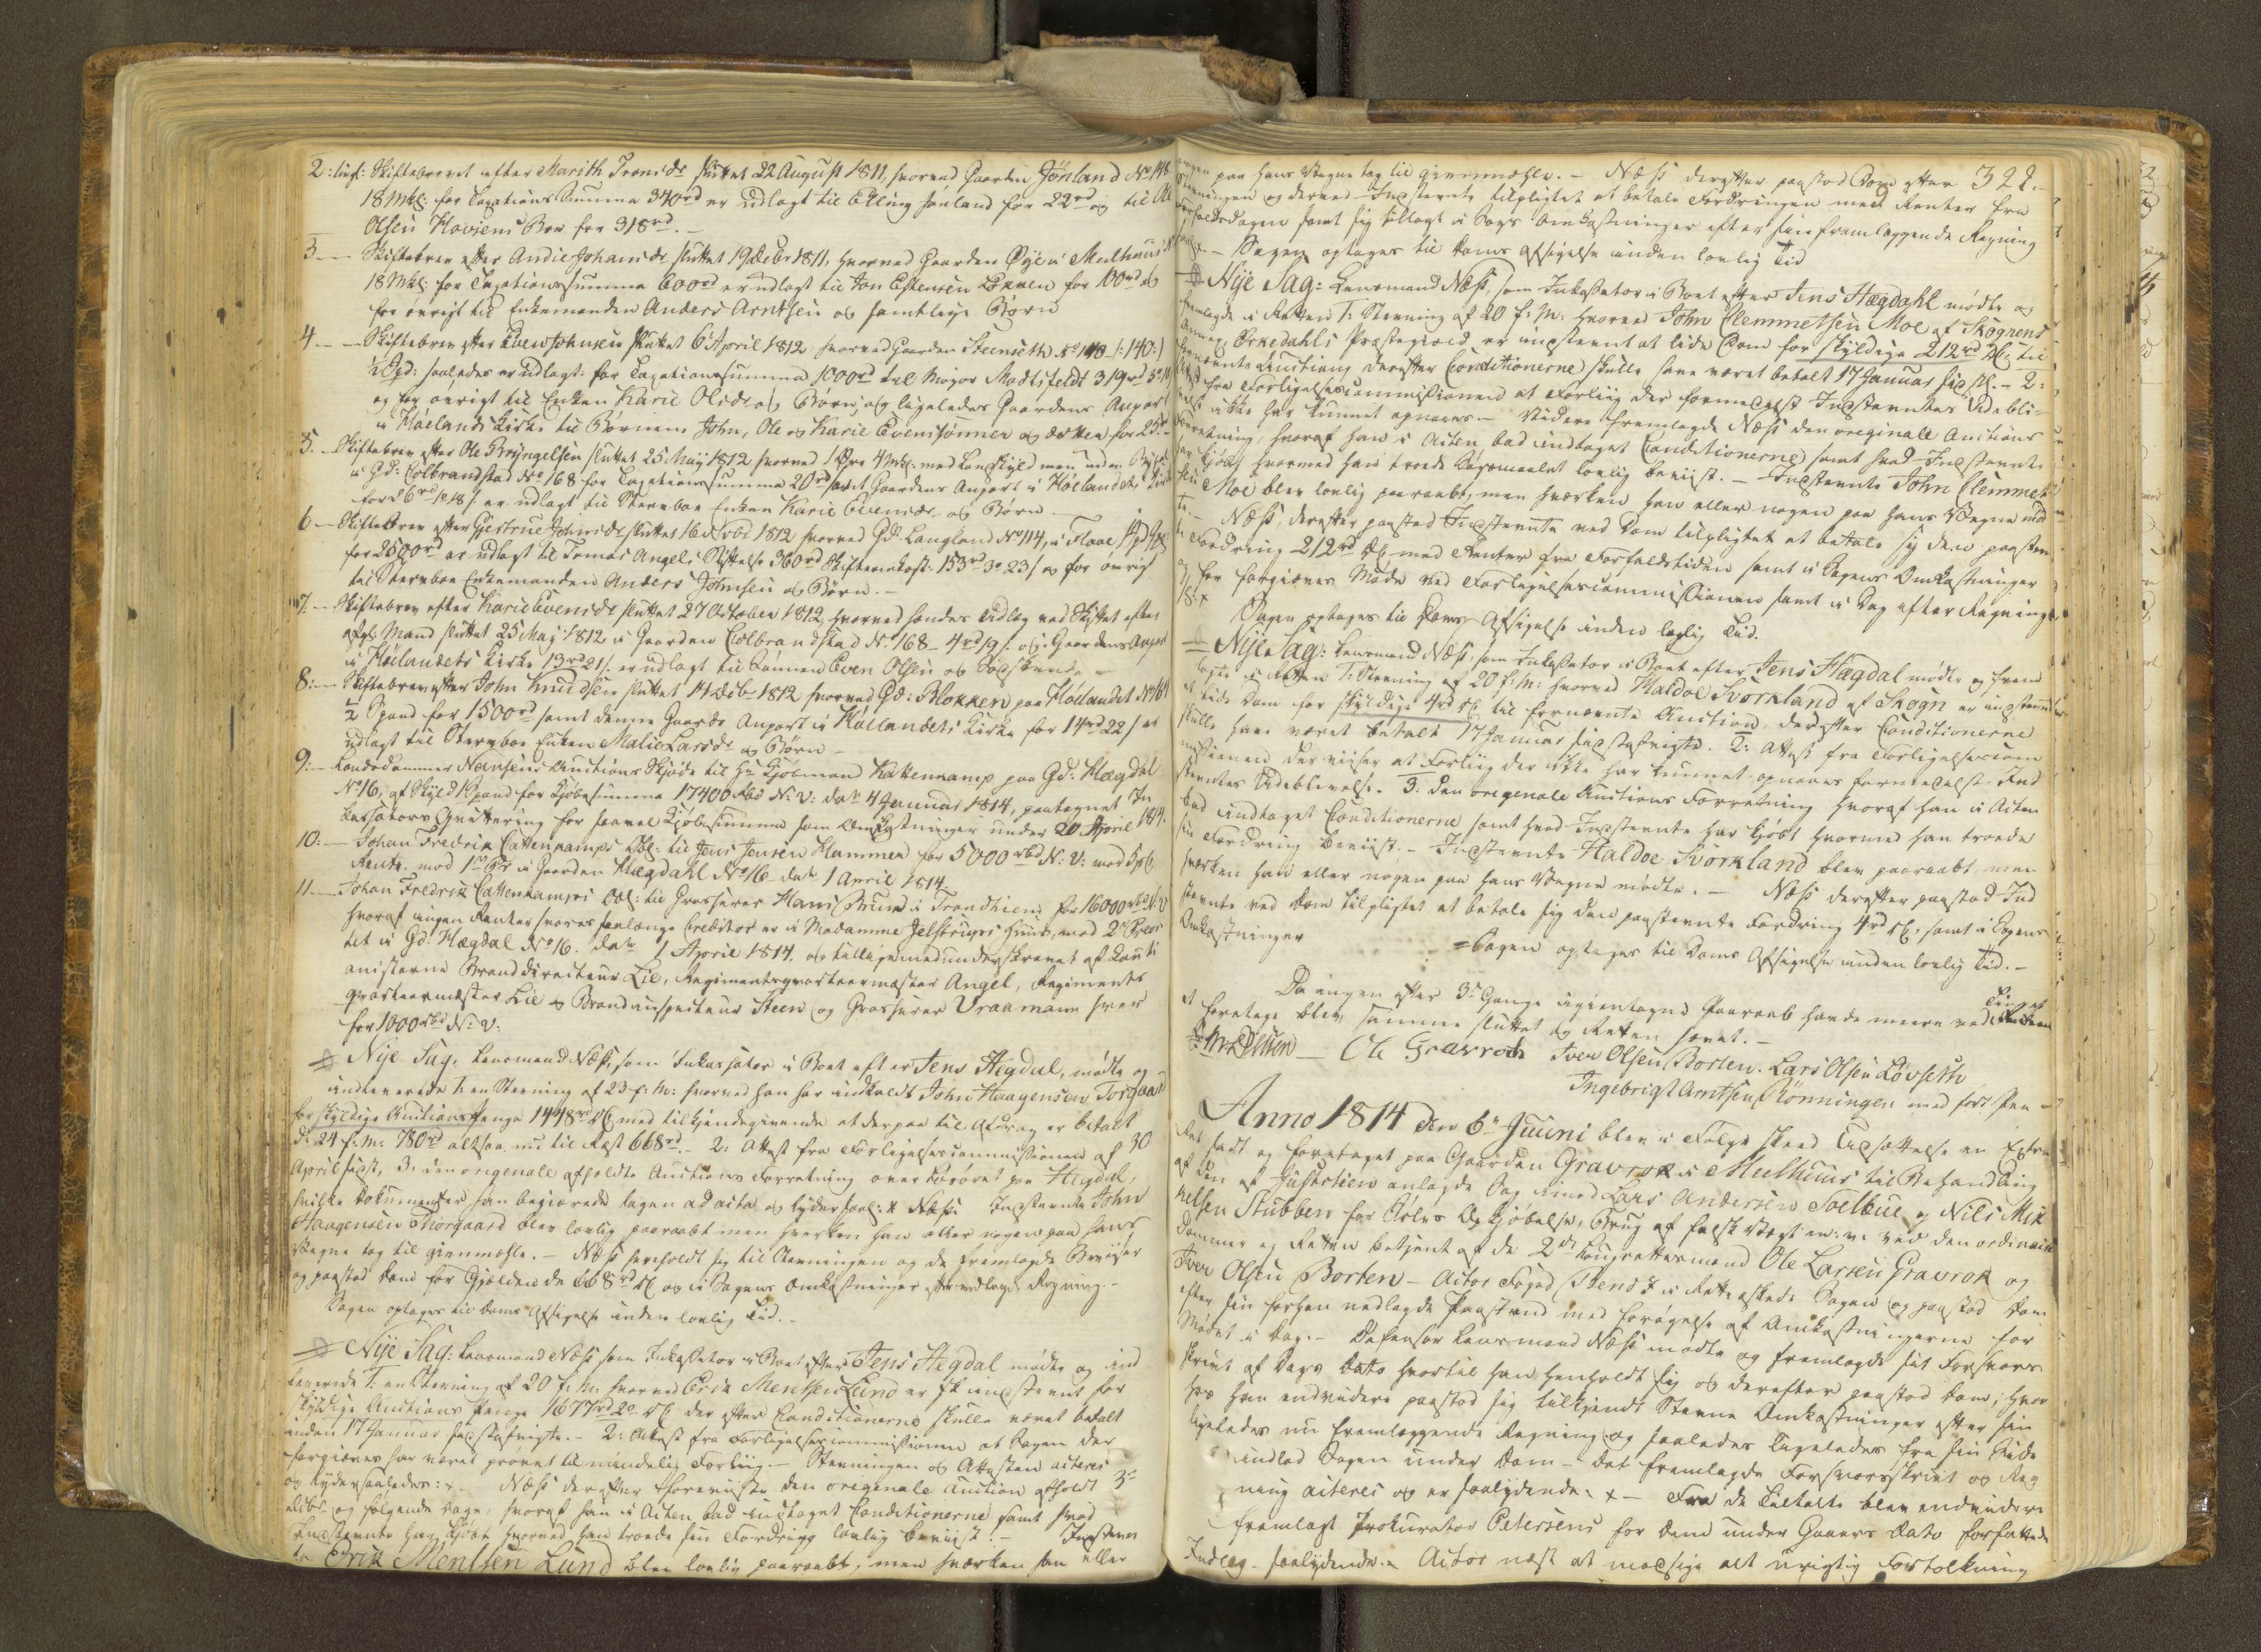 2: ligl: Skiftebrevet efter Marith Tronsdr sluttet 22 August 1811, hvorved Gaarden Jönland No 148
18 Mkl: for Taxations Summa 340rd er udlagt til Elling Jönland for 22rd og til Ole
Olsen Hovsens Boe for 318rd. –
3 – Skiftebrev efter Andrie Johansdr sluttet 19 Decbr 1811, hvorved Gaarden Øye i Meelhuus
18 Mkl: for Taxationssumma 600rd er udlagt til Jon Estensen Löxen for 100rd og
for övrigt til Enkemanden Anders Arntsen og samtlige Börn
4 – Skiftebrev efter Even Johnsen sluttet 6 April 1812 hvorved Gaarden Steenseth No 140 /:140:/
saaledes er udlagt: for Taxationssumma 1000rd til Major Madtsfeldt 319rd
og for övrigt til Enken Karie Olsdr og Börn; og ligeledes Gaardens Anpart
i Höelands Kirke til Börnene John, Ole og Karie Evensönner og datter for 25rd
5. – Skiftebrev efter Ole Bryngelsen sluttet 25 Maij 1812 hvorved 1 Øre 4 Mkl: med Landskyld men uden Bygsel
i Gd: Colbrandstad No 168 for Taxationssumma 20rd samt Gaardens Anpart i Höelandets Kirke
for 6rd er udlagt til Sterboe Enken Karie Evensdr og Börn –
6 – Skiftebrev efter Gjertrue Johnsdr sluttet 16 Novbr 1812 hvorved Gd: Langland No 114, i Flaae
for 2500rd er udlagt til Tomas Angels Stiftelse 360rd Skifteomkost: 153rd 3o 23s og for övrigt
til Sterboe Enkemanden Anders Johnsen og Börn. –
7. – Skiftebrev efter Karie Evensdr sluttet 27 October 1812, hvorved hendes Udlæg ved Skiftet efter
afgl: Mand sluttet 25 Maj 1812 i Gaarden Colbrandstad N. 168 – 4rd 19s. og i Gaardens Anpart
i Höilandets Kirke 13rd 21s. er udlagt til Sönnen Even Olsen og Södskende. –
8: – Skiftebrev efter John Knudsen sluttet 14 Decbr 1812 hvorved Gd: Blokken paa Höelandet No 164
½ Spand for 1500rd samt denne Gaards Anpart i Höelandets Kirke for 14rd 22s er
udlagt til Sterboe Enken Malie Larsdr og Börn –
9: – Landsdommer Nansens Auctions Skjöde til Hr Kjöbmand Kattenkamp paa Gd: Hægdal
No 16, af Skyld 1 Spand for Kjöbesumma 17400 Rbd N: V: dat. 4 Januar 1814, paategnet In
kassators Qvittering for saavel Kjöbesumma som Omkostninger under 20 April 1814.
10: – Johan Fredrik Cattenkamps Obl: til Jens Jensen Hammer for 5000 rbd N: V: mod 5 pC
Rente mod 1ste Pr i Gaarden Hægdahl No 16 dat. 1 April 1814.
11 – Johan Fredrik Cattenkamps Obl: til Grosserer Hans Bruun i Trondhiem for 16000 rbd N: V
hvoraf ingen Renter svares saalænge Creditor er i Madamme Jelstrups Huus, mod 2den Prior
tet i Gd: Hægdal No 16. dat. 1 April 1814. og tillige medunderskrevet af Cauti
onisterne Branddirecteur Lie, Regimentsqvarteermester Angel, Regiments
qvarteermester Lie og Brandinspecteur Steen og Grosserer Vraamann hver
for 1000 rbd N: V:
Nÿe Sag. Lensmand Næss, som Inkassator i Boet efter Jens Hegdal, mödte og
indleverede 1: en Stevning af 23 f: M: hvorved han har indkaldt John Haagensen Torgaard
for skyldige Auctions Penge 1448rd SC med tilkjendegivende at derpaa til Afdrag er betalt
d: 24 f: M: 780rd altsaa nu til Rest 668rd. – 2: Attest fra Forligelsescommissionen af 30
April sidst, 3: den originale afholdte Auctions Forretning over Lösöret paa Hegdal,
hvilke Documenter han begierede tagen ad acta og lyder saal: x Næss: Indstevnte John
Haagensen Thorgaard blev lovlig paaraabt men hverken han eller nogen paa hans
Vegne tog til gienmæhle. – Næss henholdt sig til Stevningen og de fremlagde Beviser
og paastod Dom for Gjælden de 668rd SC og i Sagens Omkostninger efter vedlagde Regning. –
Sagen optages til Doms Afsigelse inden lovlig Tid. –
Nÿe Sag: Lensmand Næss som Inkassator i Boet efter Jens Hegdal mödte og ind
leverede 1: en Stevning af 20 f: M: hvorved Erik Mentsen Lund er indstevnt for
skyldige Auctions Penge 1677rd 2o SC der efter Conditionerne skulle været betalt
inden 17 Januar sidstafvigte. – 2: Attest fra Forligelsescommissionen at Sagen der
forgieves har været prövet til mindelig Forliig. – Stevningen og Attesten acteres
og lyder saaledes: x. Næss derefter foreviiste den originale Auction afholdt 3de
Octbr og fölgende Dage, hvoraf han i Acten bad indtaget Conditionerne samt hvad
Indstevnte har kjöbt hvorved han troede sin Fordring lovlig beviist. – Indstevn
te Erik Mentsen Lund blev lovlig paaraabt, men hverken han eller
322. –
nogen paa hans Vegne tog til gienmæhle. – Næss derefter paastod Dom efter
Stevningen og derved Indstevnte tilpligtet at betale Fordringen med Renter fra
Forfaldsdagen samt sig tillagt i Sags Omkostninger efter sin fremlæggende Regning
– Sagen optages til Doms Afsigelse inden lovlig Tid
Nÿe Sag: Lensmand Næss, som Inkassator i Boet efter Jens Hægdahl mödte og
fremlagde i Retten 1: Stevning af 20 f: M: hvorved John Clemmetsen Moe af Skognens
Annex Örkedahls Præstegield er indstevnt at lide Dom for skyldige 212rd SC til
fornævnte Auction derefter Conditionerne skulle have været betalt 17 Januar sidstl. – 2:
Attest fra Forligelsescommissionen at Forliig der formedelst Indstevntes Udebli=
velse ikke har kunnet opnaaes. – Videre fremlagde Næss den originale Auctions
Forretning, hvoraf han i Acten bad indtaget Conditionerne samt hvad Indstevnte
har kjöbt hvormed han troede Sögsmaalet lovlig beviist. – Indstevnte John Clemmet
sen Moe blev lovlig paaraabt, men hverken han eller nogen paa hans Vegne möd
te. – Næss, derefter paastod Indstevnte ved Dom tilpligtet at betale sig den paastevn
te Fordring 212rd SC med Renter fra Forfaldstiden samt i Sagens Omkostninger
for forgieves Möde ved Forligelsescommissionen samt i Dag efter Regning.
Sagen optages til Doms Afsigelse inden lovlig Tid.
Nÿe Sag: Lensmand Næss, som Inkassator i Boet efter Jens Hægdal mödte og frem
lagde i Retten 1: Stevning af 20 f: M: hvorved Haldoe Svorkland af Skogn er indstevnt
at lide Dom for skyldige 4rd SC til fornævnte Auction, derefter Conditionerne
skulle have været betalt 17 Januar sidstafvigte. 2: Attest fra Forligelsescom
missionen der viiser at Forliig der ikke har kunnet opnaaes formedelst Ind
stevntes Udeblivelse. 3: den originale Auctions Forretning hvoraf han i Acten
bad indtaget Conditionerne samt hvad Indstevnte har kjöbt hvormed han troede
sin Fordring beviist. – Indstevnte Haldoe Svorkland blev paaraabt, men
hverken han eller nogen paa hans Vegne mödte. – Næss derefter paastod Ind
stevnte ved Dom tilpligtet at betale sig den paastevnte Fordring 4rd SC, samt i Sagens
Omkostninger = Sagen optages til Doms Afsigelse inden lovlig Tid. –
Da ingen efter 3de Gange igientagne Paaraab havde meere ved Tinget
at foretage blev samme sluttet og Retten hævet. –
Ole Gravrok Iver Olsen Borten. Lars Olsen Lövseth
Ingebrigt Arntsen Rönningen med fört Pen –
Anno 1814 den 6te Juuni blev i Fölge skeed Udsættelse en Extra
Ret sadt og foretaget paa Gaarden Gravrok i Meelhuus til Behandling
af den af Justitien anlagde Sag imod Lars Andersen Soelbue og Nils Mik
kelsen Stubben for Opkjöbelse, Brug af falsk Vægt m: v: ved den ordinaire
Dommer og Retten betjent af de 2de Laugrettesmænd Ole Larsen Gravrok og
Iver Olsen Borten – Actor Foged i Rette æskede Sagen og paastod Dom
efter sin forhen nedlagde Paastand med Forögelse af Omkostningerne for
Mödet i Dag. – Defensor Lensmand Næss mödte og fremlagde sit Forsvars
skrivt af Dags Dato hvortil han henholdt sig og derefter paastod Dom; hvor
hos han endvidere paastod sig tilkjendt Stevne Omkostninger efter sin
ligeledes nu fremlæggende Regning og saaledes ligeledes fra sin Side
indlod Sagen under Dom – Det fremlagde Forsvarsskrivt og Reg
ning acteres og er saalydende: x – Fra de Tiltalte blev endvidere
fremlagt Prokurator Petersens for dem under Gaars Dato forfattede
Indlæg saalydende. x Actor næst at modsige alt urigtig Fortolkning